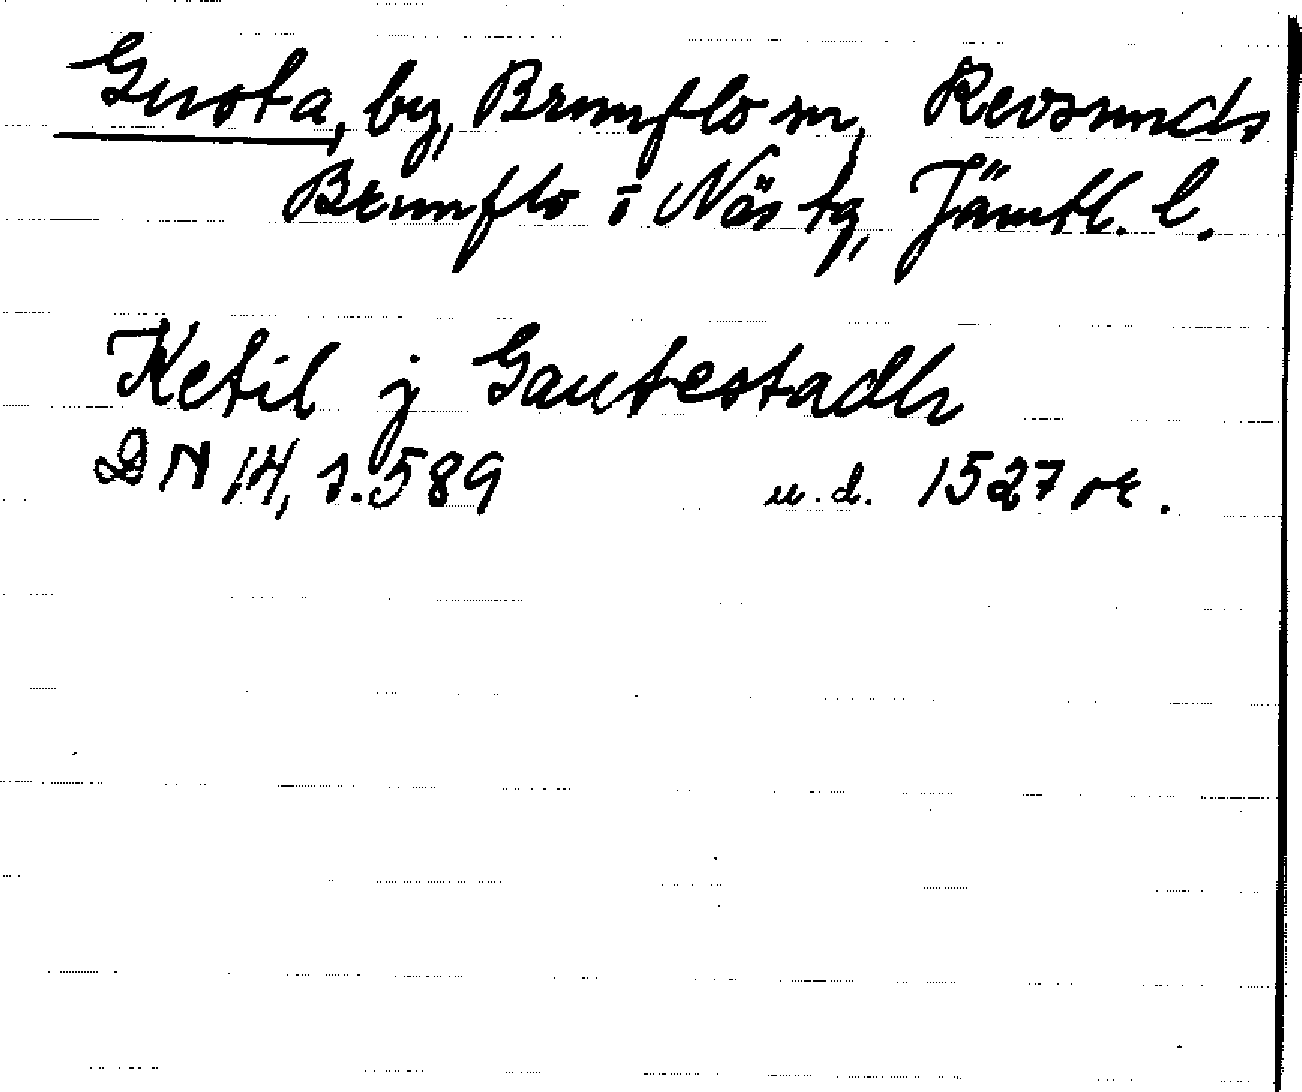 Gusta, by, Brunflo sn, Revsunds
Brunflo o Näs tg, Jämtl. l.
Ketil j Gautestadh
DN 14, s. 589 u.d. 1527 or.